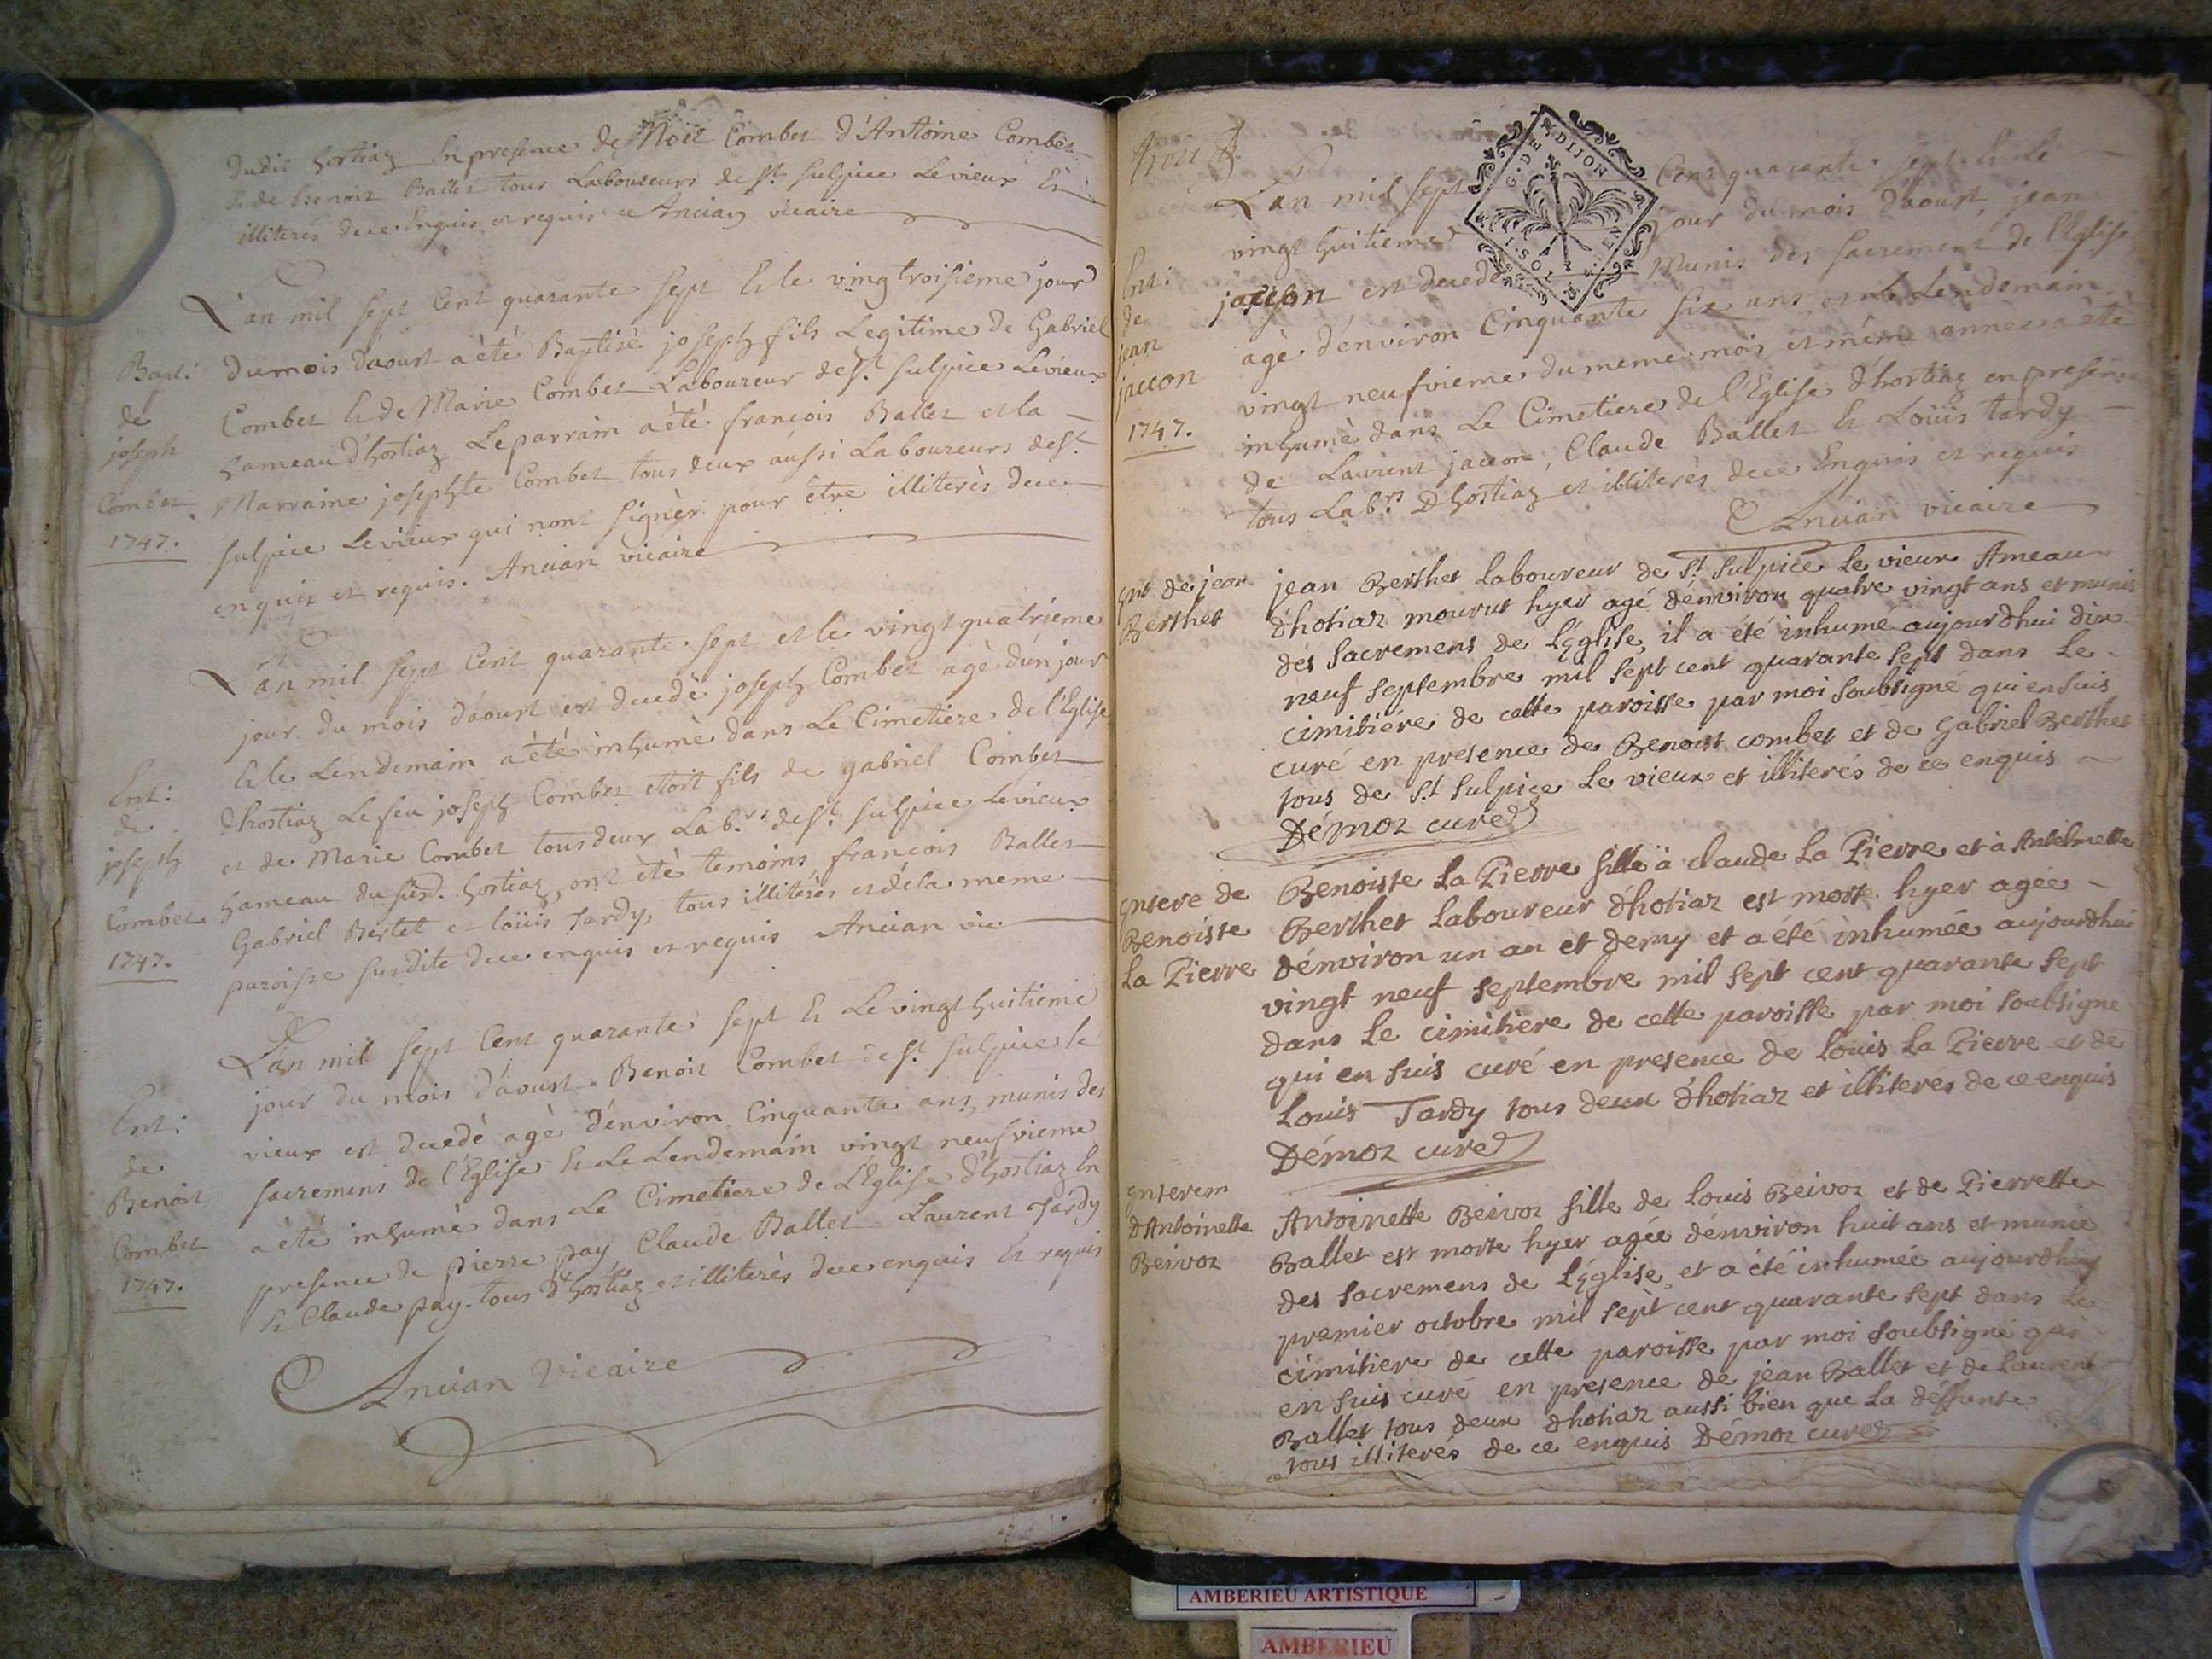 dudit hortiaz En presence de Noël Combet d'Antoine Combet
& de Benoit Ballet tous Laboureurs de St. Sulpice Le vieux Et
illiterés de ce Enquis et requis Ancian vicaire
L'an mil sept Cent quarante sept & le vingtroisieme jour
Bapt:
de
joseph
Combet
1747.
du mois d'aoust a èté Baptisè joseph fils Legitime de Gabriel
Combet & de Marie Combet Laboureur de St. Sulpice Levieux
hameau d'hostiaz Le parrain a èté françois Ballet et la
Marraine josephte Combet tous deux aussi Laboureurs de St.
sulpice Levieux qui nont signèr pour être illiterès de ce
enquis et requis. Ancian vicaire
L'an mil sept Cent quarante sept et le vingt quatrieme
jour du mois d'aoust est decedè joseph Combet agè d'un jour
Ent:
de
joseph
Combet
1747.
& le Lendemain a èté inhumè dans Le Cimetiere de l'Eglise
d'hostiaz Le feu joseph Combet etoit fils de gabriel Combet
et de Marie Combet tous deux Lab.rs de St. sulpice Levieux
hameau du susd. hostiaz, ont ètè temoins françois Ballet
Gabriel Bertet et loüis Tardy, tous illiterès et de la meme
paroisse susdite de ce enquis et requis Ancian vic.
L'an mil sept Cent quarante sept & Le vingt huitieme
Ent:
de
Benoit
Combet
1747.
jour du mois d'aoust Benoit Combet de St. sulpice le
vieux est decedè agè d'environ Cinquante ans, munis des
sacremens de l'Eglise & Le Lendemain vingt neufvieme
a èté inhumè dans Le Cimetiere de L'Eglise d'hostiaz En
presence de pierre pay Claude Ballet Laurent Tardy
& Claude pay. tous d'hostiaz et illiterès de ce enquis & requis
Ancian Vicaire
G. DE DIJON
L'an mil sept Cent quarante sept & Le
Ent:
de
jean
jaccon
1747.
vingt huitieme jour du mois d'aoust, jean
jaccon est decedè Munis des sacrement de l'Eglise
agè d'environ Cinquante six ans, et Le Lendemain
vingt neufvieme du meme mois et même annee a ètè
inhumè dans Le Cimetiere de l'Eglise d'hostiaz en presence
de Laurent jaccon, Claude Ballet & Loüis tardy
tous Lab.rs D'hostiaz et illiterès de ce Enquis et requis
Ancian vicaire
Ent de jean
Berthet
jean Berthet Laboureur de St. Sulpice Le vieux Ameau
d'hotiaz mourut hyer agé d'environ quatre vingt ans et munis
des Sacremens de L'Eglise, il a été inhumé aujourdhui dix
neuf septembre mil sept cent quarante sept dans Le
cimitiére de cette paroisse par moi soubsigné qui en suis
curé en presence de Benoist combet et de Gabriel Berthet
tous de St Sulpice Le vieux et illiterés de ce enquis
Démoz curé
Entere de
Benoiste
La Pierre
Benoiste La Pierre fille à claude La Pierre et à Anthelmette
Berthet Laboureur d'hotiaz est morte hyer agée
d'environ un an et demy et a été inhumée aujourdhui
vingt neuf septembre mil sept cent quarante sept
dans Le cimitiere de cette paroisse par moi soubsigné
qui en suis curé en presence de Louis La Pierre et de
Louis Tardy tous deux d'hotiaz et illiterés de ce enquis
Démoz curé
Enterem
d'Antoinette
Beivoz
Antoinette Beivoz fille de Louis Beivoz et de Pierrette
Ballet est morte hyer agée d'environ huit ans et munie
des sacremens de L'Eglise, et a été inhumée aujourdhuy
premier octobre mil sept cent quarante sept dans Le
cimitiere de cette paroisse par moi soubsigné qui
en suis curé en presence de jean Ballet et de Laurent
Ballet tous deux d'hotiaz aussi bien que La déffunte
tous illiterés de ce enquis Démoz curé
AMBERIEU ARTISTIQUE
AMBERIEU